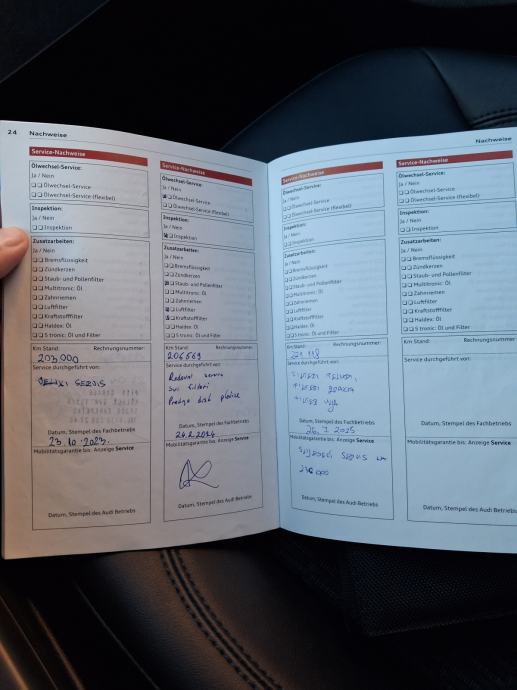 24 Nachweise
Service-Nachweise
Ölwechsel-Service:
Ja / Nein
Ölwechsel-Service
Ölwechsel-Service (flexibel)
Inspektion:
Ja / Nein
Inspektion
Zusatzarbeiten:
Ja / Nein
Bremsflüssigkeit
Zündkerzen
Staub- und Pollenfilter
Multitronic: Öl
Zahnriemen
Luftfilter
Kraftstofffilter
Haldex: Öl
S tronic: Öl und Filter
Km Stand: Rechnungsnummer:
203.000
Service durchgeführt von:
VELIKI SERVIS
Datum, Stempel des Fachbetriebs
23.10.2023.
Mobilitätsgarantie bis: Anzeige Service
Datum, Stempel des Audi Betriebs
Service-Nachweise
Ölwechsel-Service:
Ja / Nein
Ölwechsel-Service
Ölwechsel-Service (flexibel)
Inspektion:
Ja / Nein
Inspektion
Zusatzarbeiten:
Ja / Nein
Bremsflüssigkeit
Zündkerzen
Staub- und Pollenfilter
Multitronic: Öl
Zahnriemen
Luftfilter
Kraftstofffilter
Haldex: Öl
S tronic: Öl und Filter
Km Stand: Rechnungsnummer:
206569
Service durchgeführt von:
Redovni servis
Svi filteri
Prednje disk pločice
Datum, Stempel des Fachbetriebs
24.2.2024
Mobilitätsgarantie bis: Anzeige Service
Datum, Stempel des Audi Betriebs
Nachweise
Service-Nachweise
Ölwechsel-Service:
Ja / Nein
Ölwechsel-Service
Ölwechsel-Service (flexibel)
Inspektion:
Ja / Nein
Inspektion
Zusatzarbeiten:
Ja / Nein
Bremsflüssigkeit
Zündkerzen
Staub- und Pollenfilter
Multitronic: Öl
Zahnriemen
Luftfilter
Kraftstofffilter
Haldex: Öl
S tronic: Öl und Filter
Km Stand: Rechnungsnummer:
Service durchgeführt von:
FILTER
FILTER
FILTER ULJA
Datum, Stempel des Fachbetriebs
2025
Mobilitätsgarantie bis: Anzeige Service
SLJEDEĆI SERVIS NA
Datum, Stempel des Audi Betriebs
Service-Nachweise
Ölwechsel-Service:
Ja / Nein
Ölwechsel-Service
Ölwechsel-Service (flexibel)
Inspektion:
Ja / Nein
Inspektion
Zusatzarbeiten:
Ja / Nein
Bremsflüssigkeit
Zündkerzen
Staub- und Pollenfilter
Multitronic: Öl
Zahnriemen
Luftfilter
Kraftstofffilter
Haldex: Öl
S tronic: Öl und Filter
Km Stand: Rechnungsnummer:
Service durchgeführt von:
Datum, Stempel des Fachbetriebs
Mobilitätsgarantie bis: Anzeige Service
Datum, Stempel des Audi Betriebs